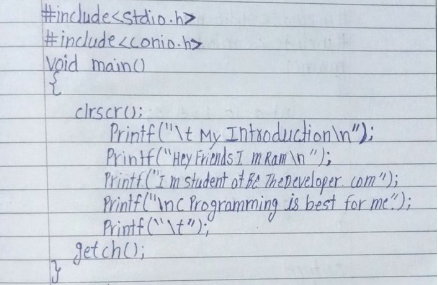 #include<stdio.h>
#include<conio.h>
void main()
{
clrscr();
Printf("\t My Introduction\n");
Printf("Hey Friends I m Ram\n");
Printf("I m student of BE TheDeveloper. com");
Printf("\nC Programming is best for me.");
Printf("\t");
getch();
}